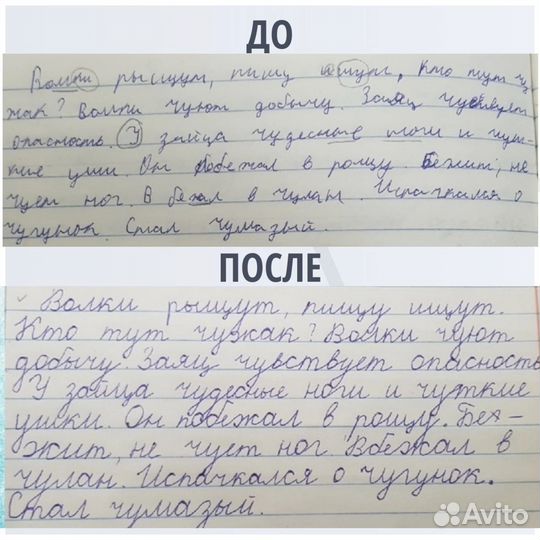 ДО
Волки рысщут, пищу ищут, Кто тут чу
жак? Волки чуют добычу. Заяц чувствует
опасность. У зайца чудесные ноги и чут-
кие уши. Он побежал в рощу. Бежит, не
чует ног. В бежал в чулан. Испачкался о
чугунок. Стал чумазый.
ПОСЛЕ
Волки рыщут, пищу ищут.
Кто тут чужак? Волки чуют
добычу. Заяц чувствует опасность
У зайца чудесные ноги и чуткие
ушки. Он побежал в рощу. Бе-
жит, не чует ног. Вбежал в
чулан. Испачкался о чугунок.
Стал чумазый.
Avito